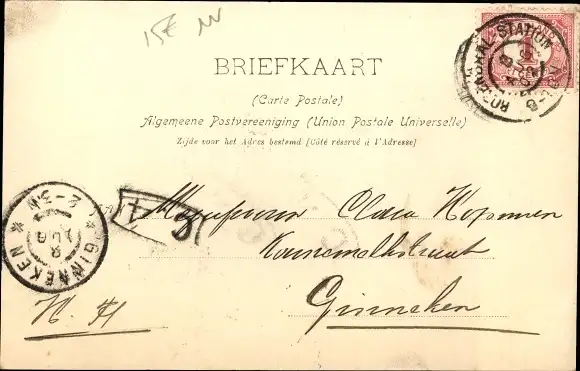 15€
BRIEFKAART
(Carte Postale)
Algemeene Postvereeniging (Union Postale Universelle)
Zijde voor het Adres bestemd [Côté réservé à l'Adresse]
1
STATION
GINNEKEN
8 AUG
Mejufvrouw Clara Kopmen
Ginneken
H. H